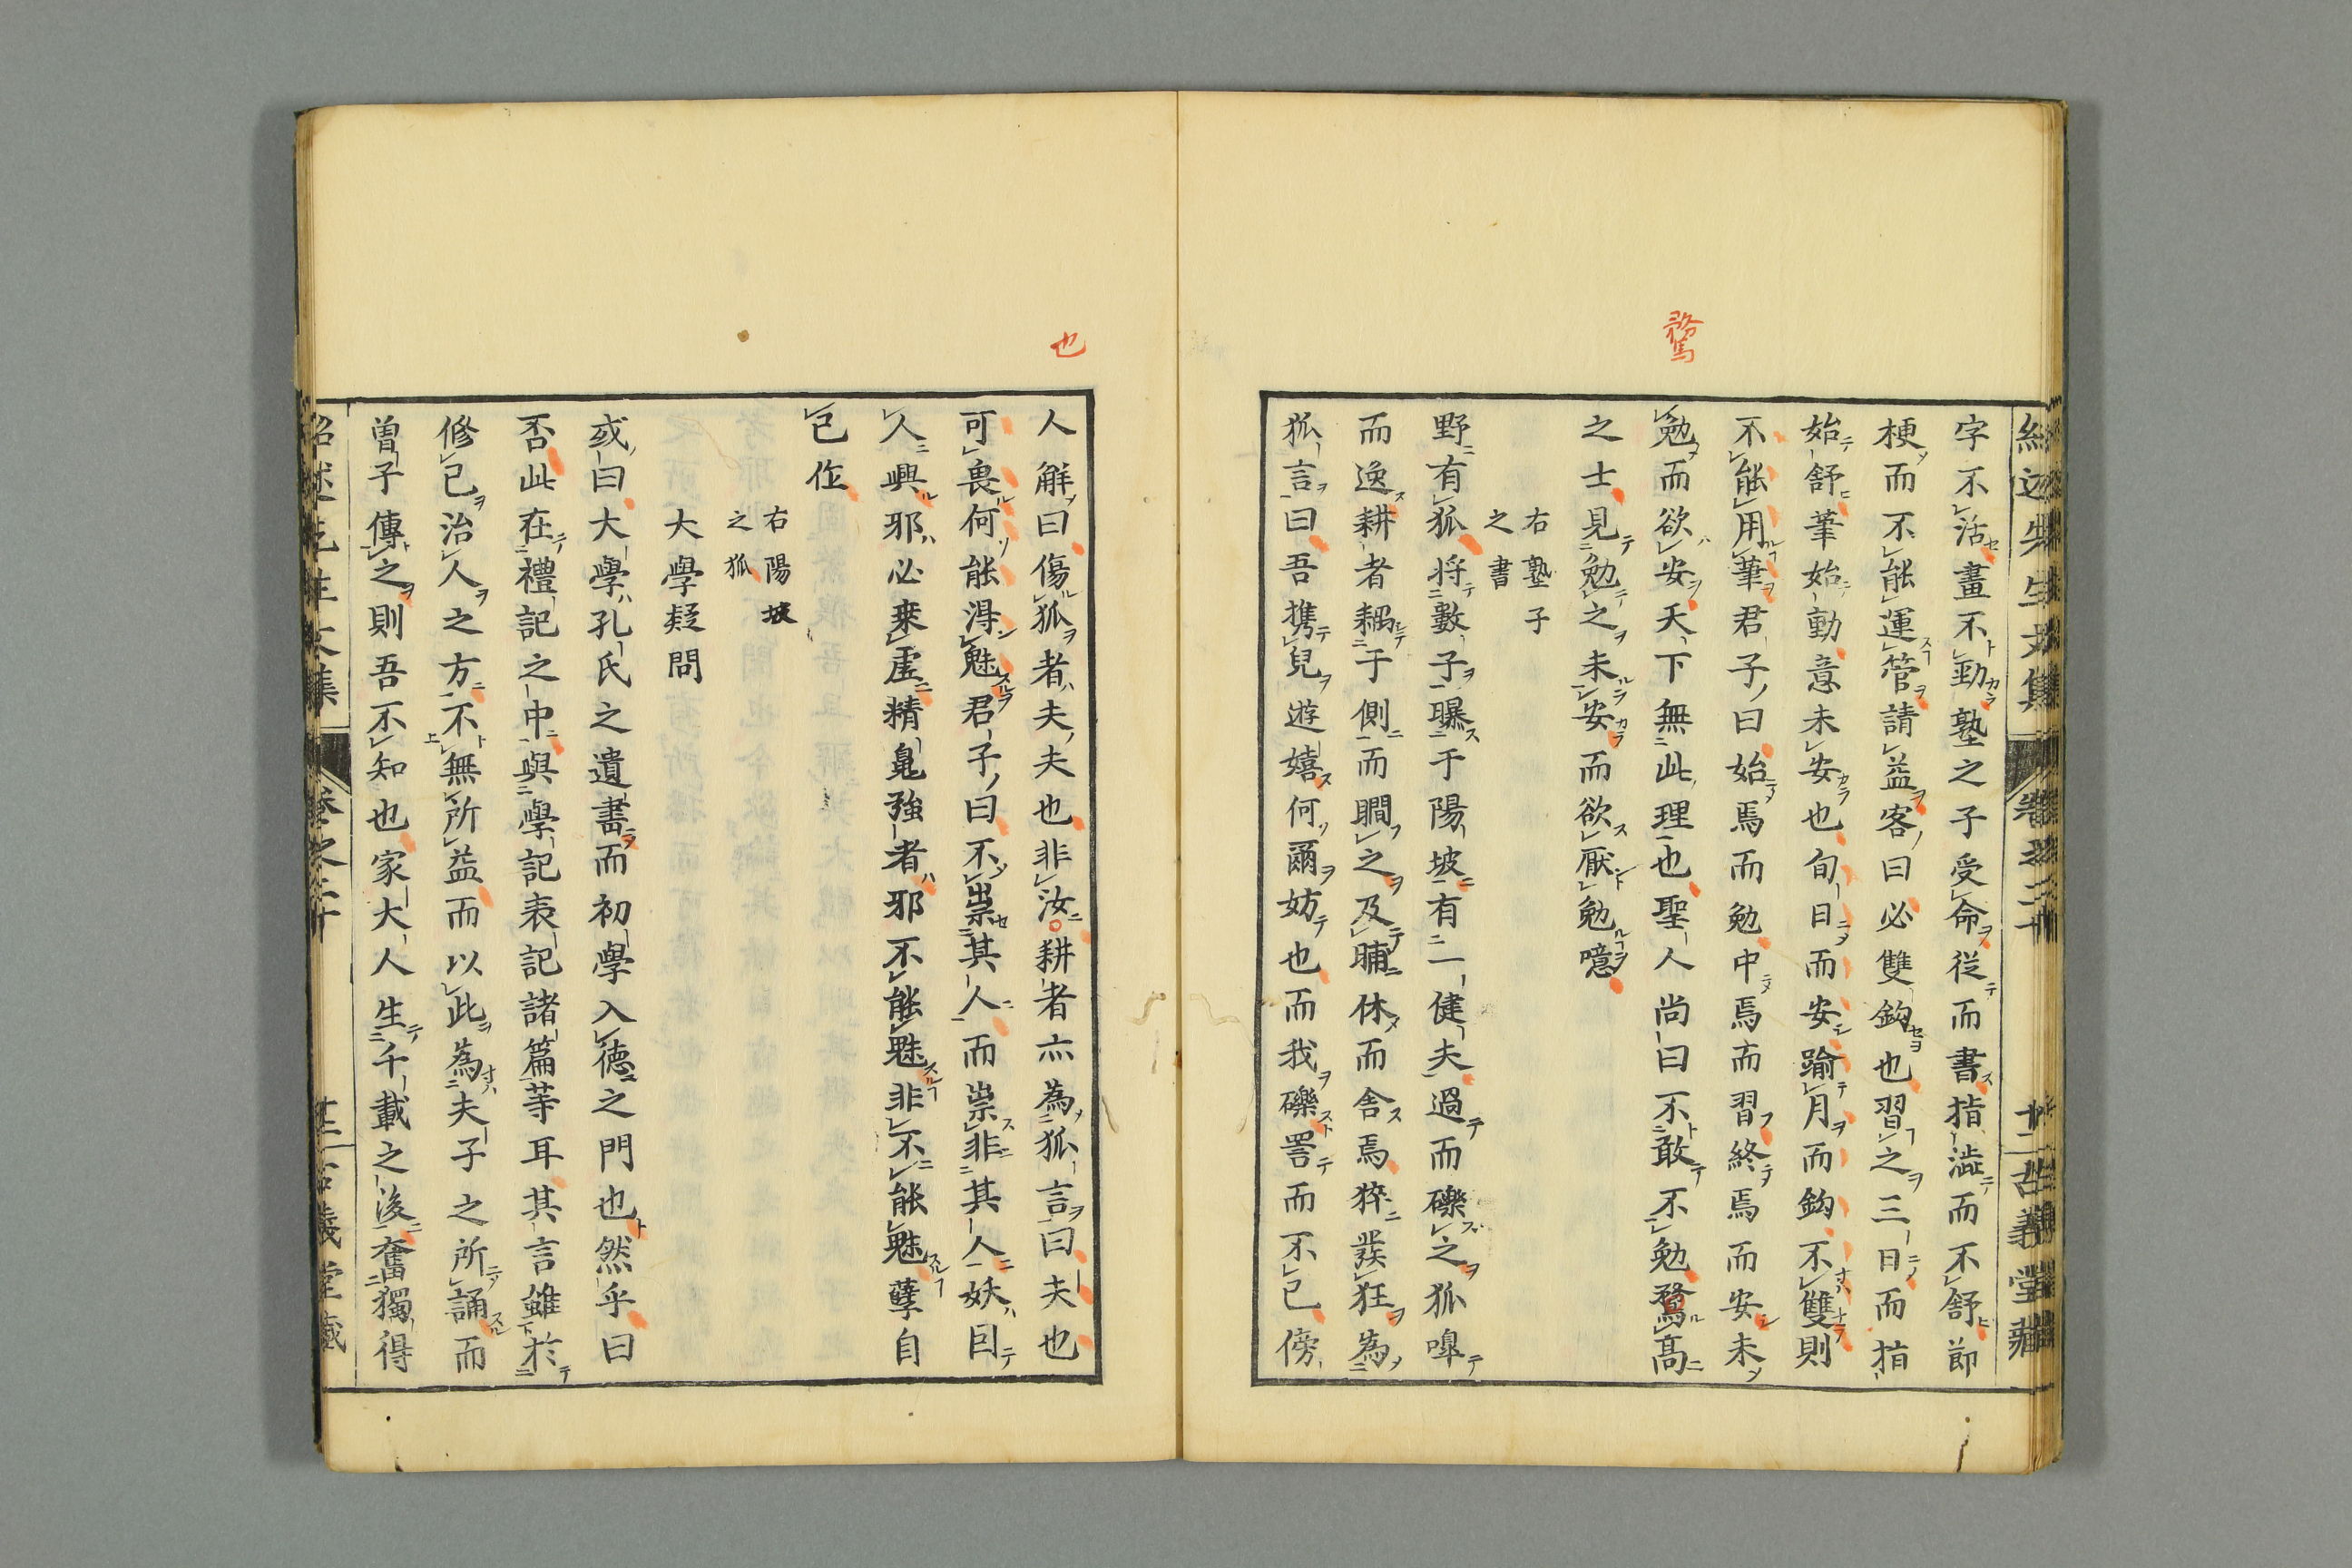 騖
紹述先生文集 卷之二十 古義堂藏
字不活畫不勁塾之子受命從而書指澁而不舒節
梗而不能運管請益客曰必雙鈎也習之三日而指
始舒筆始動意未安也旬日而安踰月而鈎不雙則
不能用筆君子曰始焉而勉中焉而習終焉而安未
勉而欲安天下無此理也聖人尚曰不敢不勉騖高
之士見勉之未安而欲厭勉噫
右塾子
之書
野有狐将數子曝于陽坡有一健夫過而礫之狐嘷
而逸耕者耦于側而瞯之及晡休而舍焉猝發狂為
狐言曰吾携兒遊嬉何爾妨也而我礫詈而不已傍
也
人解曰傷狐者夫夫也非汝耕者亦為狐言曰夫也
可畏何能得魅君子曰不祟其人而祟非其人妖固
人興邪必乗虛精鬼強者邪不能魅非不能魅孽自
已作
右陽坡
之狐
大學疑問
或曰大學孔氏之遺書而初學入德之門也然乎曰
否此在禮記之中與學記表記諸篇等耳其言雖於
修已治人之方不無所益而以此為夫子之所誦而
曽子傳之則吾不知也家大人生千載之後奮獨得
紹述先生文集 卷之二十 古義堂藏